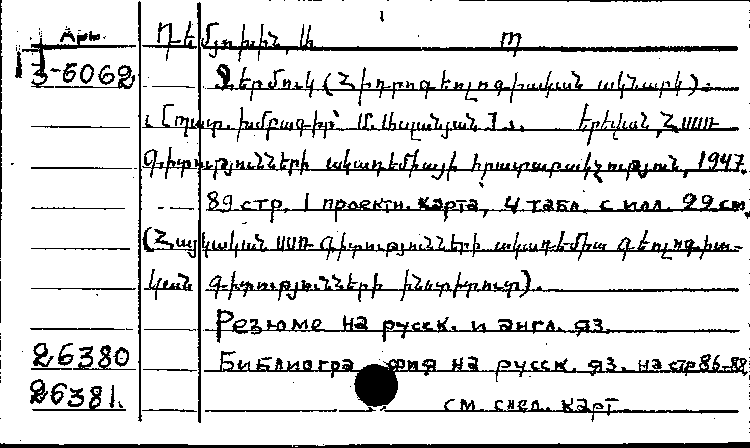 Арм. Դեմյոխին, Ա
3-6062 Ջերմուկ (Հիդրոգեոլոգիական ակնարկ).
[պատ. խմբագիր՝ Երևան, ՀՍՍՌ
Գիտությունների ակադեմիայի հրատարակչություն, 1947.
89 стр. 1 проектн. карта, 4 табл. с илл. 29 см.
(Հայկական ՍՍՌ Գիտությունների ակադեմիա Գեոլոգիա-
կան գիտությունների ինստիտուտ).
Резюме на русск. и англ. яз.
26380 Библиография на русск. яз. на стр 86-88
26381. см. след. карт